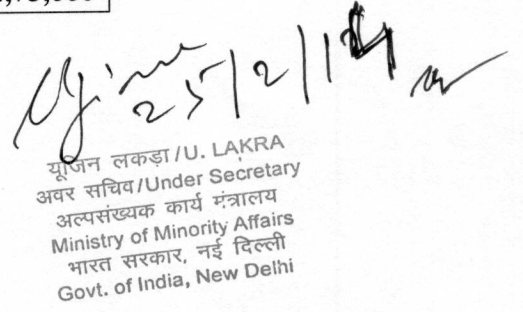 25/2/14
यूजिन लकड़ा/U. LAKRA
अवर सचिव/Under Secretary
अल्पसंख्यक कार्य मंत्रालय
Ministry of Minority Affairs
भारत सरकार, नई दिल्ली
Govt. of India, New Delhi